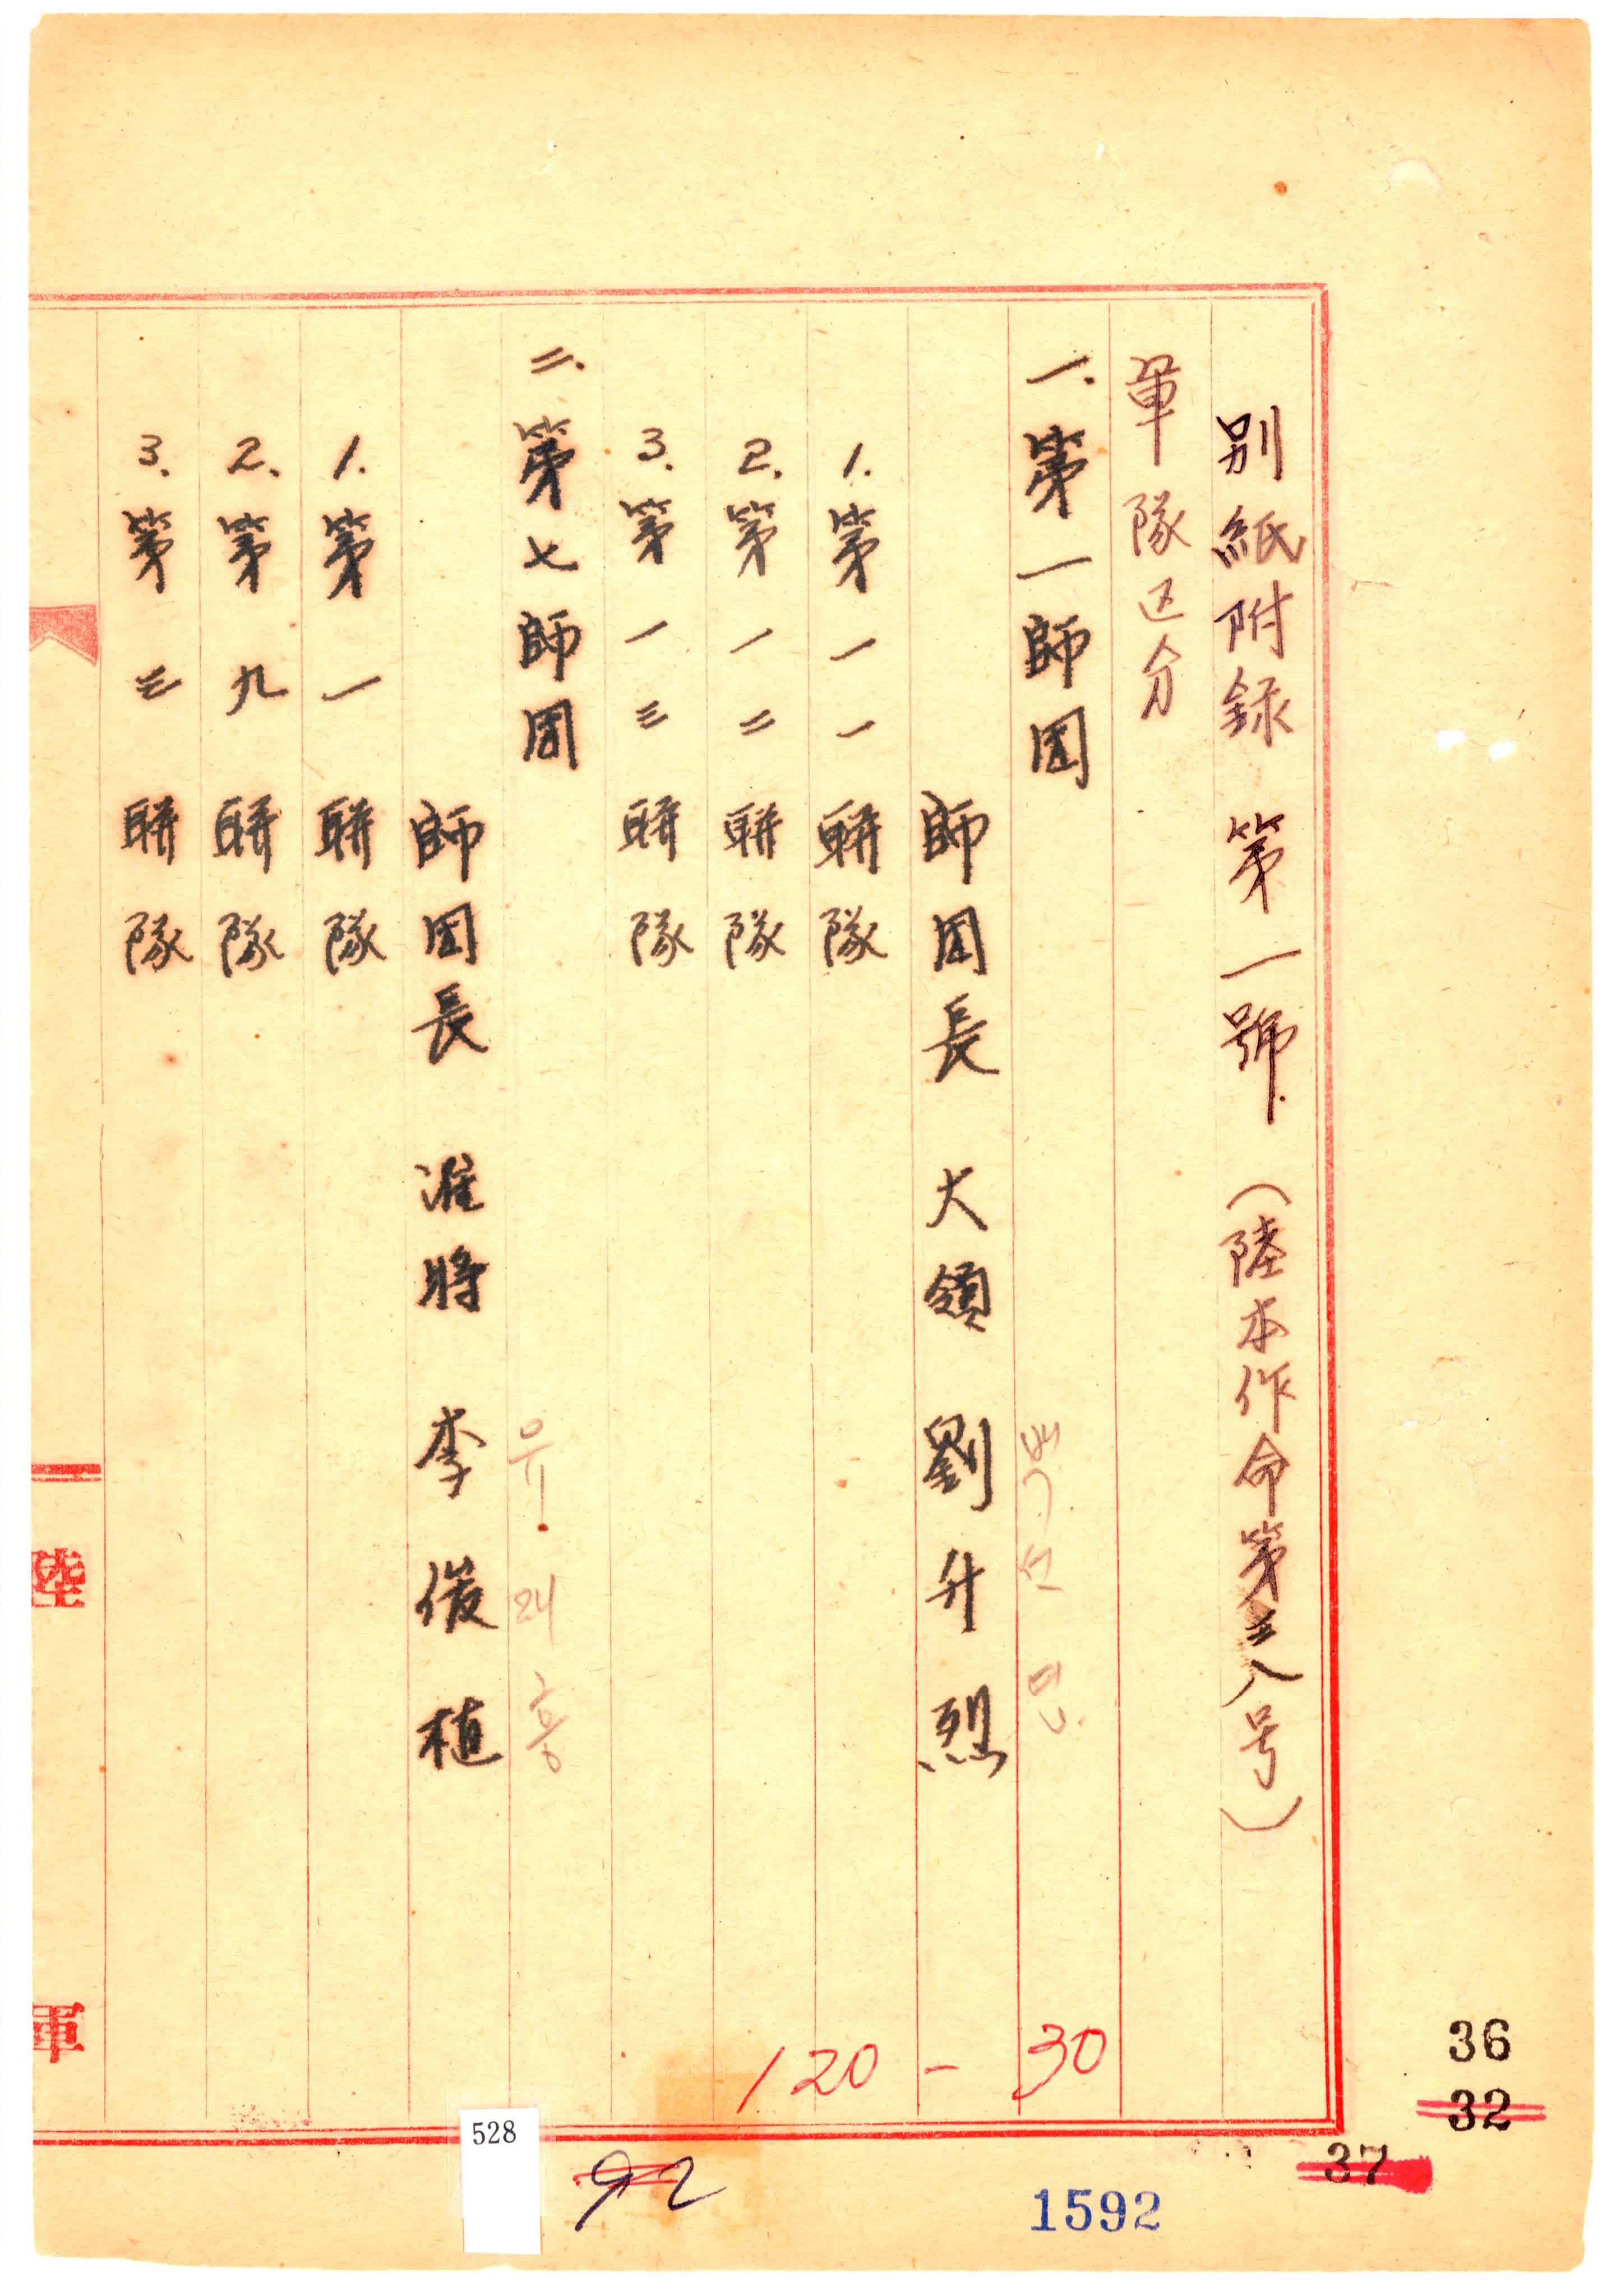 別紙附録 第一號 (陸本作命第三八号)
軍隊区分
一. 第一師団
師団長 大領 劉升烈
1. 第一一聯隊
2. 第一二聯隊
3. 第一三聯隊
二. 第七師団
유. 재흥
師団長 准將 李俊植
1. 第一聯隊
2. 第九聯隊
3. 第三聯隊
陸
軍
120 - 30
36
32
37
528
92
1592